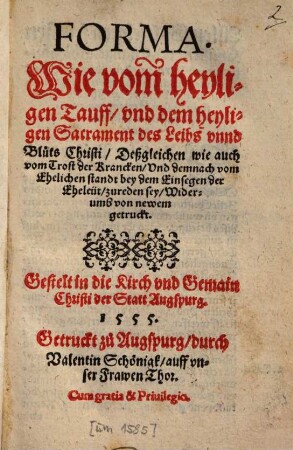 2
FORMA.
Wie vom̃ heyli-
gen Tauff/ vnd dem heyli-
gen Sacrament des Leibs vnnd
Blůts Christi/ Deßgleichen wie auch
vom Trost der Krancken/ Vnd demnach vom
Ehelichen standt bey dem Einsegen der
Eheleüt/ zureden sey/ Wider-
umb von newem
getruckt.
Gestelt in die Kirch vnd Gemain
Christi der Statt Augspurg.
1555.
Getruckt zů Augspurg/ durch
Valentin Schönigk/ auff vn-
ser Frawen Thor.
Cum gratia & Priuilegio.
[um 1585]